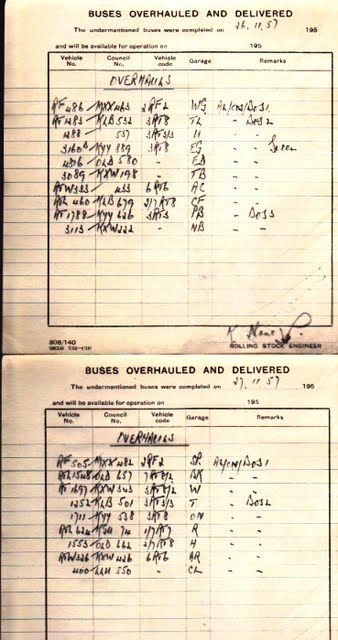 BUSES OVERHAULED AND DELIVERED
The undermentioned buses were completed on 26.11.57 195
and will be available for operation on 195
Vehicle No. Council No. Vehicle code Garage Remarks
OVERHAULS
RF 486 MXX 463 2RF2 WG
RT 1483 KLB 532 3RT8 TL "
1288 537 3RT3/3 H " "
3160 KYY 889 3RT8 EG " " Green
4806 OLD 580 - ED " "
3089 KXW 198 - TB " "
RTW 333 433 6RT6 AC " "
RTL 460 KLB 679 2/7RT8 CF " "
RT 1788 KYY 626 3RT3 PB "
3113 KXW 222 - NB " "
ROLLING STOCK ENGINEER
808/140
BUSES OVERHAULED AND DELIVERED
The undermentioned buses were completed on 27.11.57 195
and will be available for operation on 195
Vehicle No. Council No. Vehicle code Garage Remarks
OVERHAULS
RF 505 MXX 482 2RF2
OLD 657 BK " "
RT 1697 KXW 343 W " "
1252 KLB 501 3RT3/3 T "
1711 KYY 538 3RT8 " "
RTL 624 74 R " "
1553 OLD 662 2/7RT8 H " "
RTW 326 KXW 426 6RT6 AR " "
400 LLU 550 - CL " "